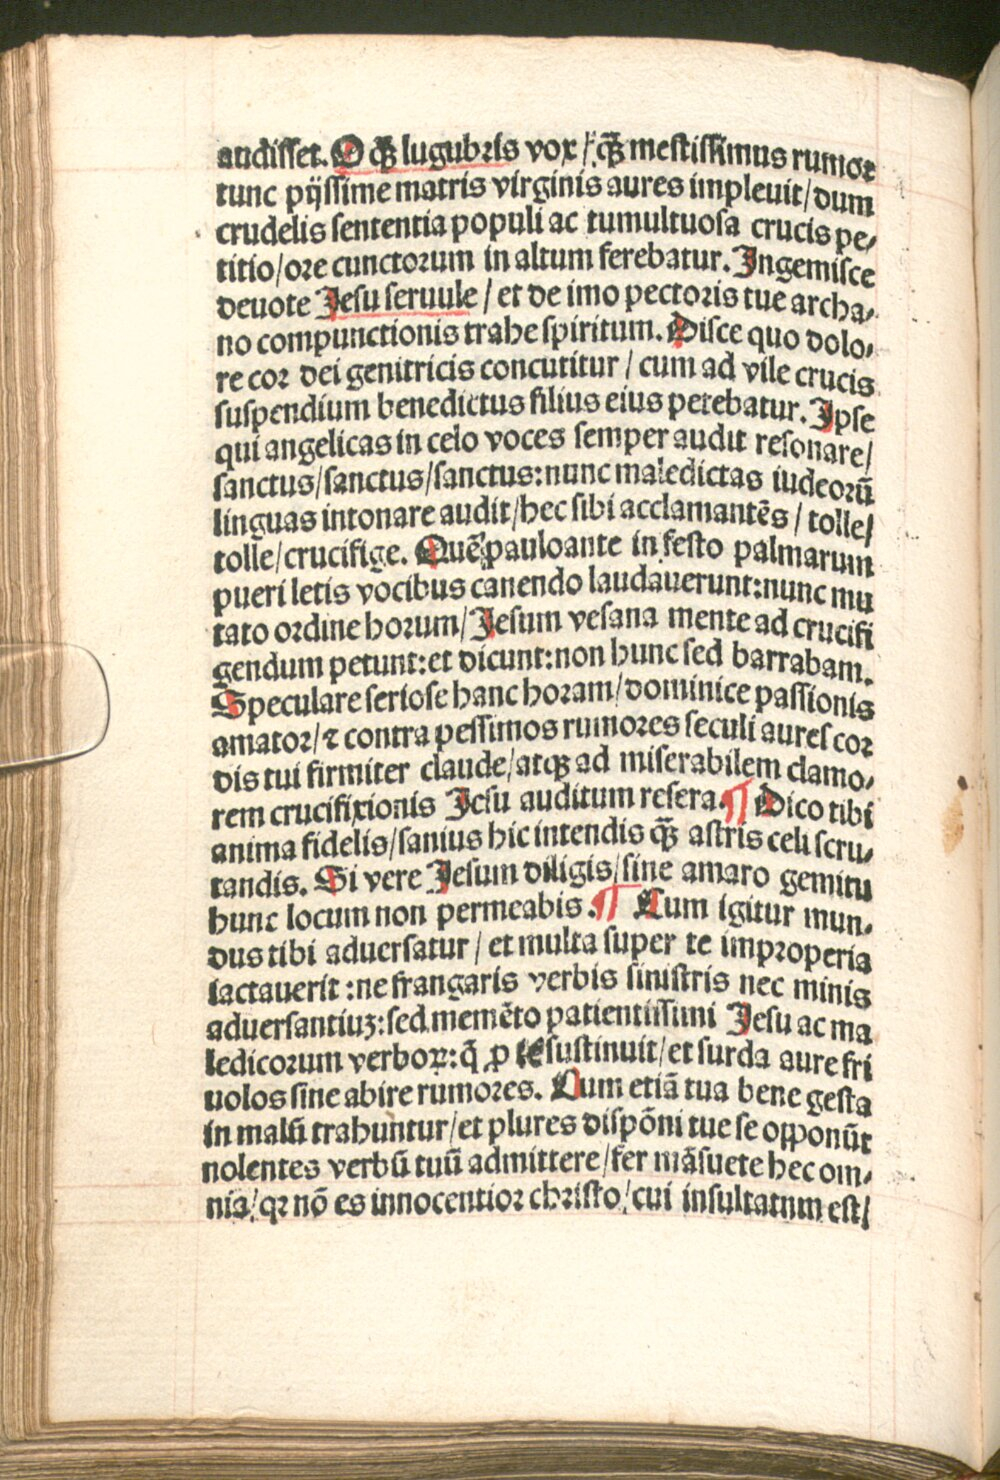 audisset. O qꝫ lugubris vox / qꝫ mestissimus rumor
tunc pijssime matris virginis aures impleuit/dum
crudelis sententia populi ac tumultuosa crucis pe-
titio/ore cunctorum in altum ferebatur. Ingemisce
deuote Jesu seruule / et de imo pectoris tue archa-
no compunctionis trahe spiritum. Disce quo dolo-
re cor dei genitricis concutitur / cum ad vile crucis
suspendium benedictus filius eius petebatur. Ipse
qui angelicas in celo voces semper audit resonare/
sanctus/sanctus/sanctus:nunc maledictas iudeorū
linguas intonare audit/hec sibi acclamantēs / tolle/
tolle/crucifige. Quē pauloante in festo palmarum
pueri letis vocibus canendo laudauerunt:nunc mu
tato ordine horum/Jesum vesana mente ad crucifi
gendum petunt:et dicunt:non hunc sed barrabam.
Speculare seriose hanc horam/dominice passionis
amator/⁊ contra pessimos rumores seculi aures cor
dis tui firmiter claude/atqꝫ ad miserabilem clamo-
rem crucifixionis Jesu auditum resera. ¶ Dico tibi
anima fidelis/sanius hic intendis qꝫ astris celi scru-
tandis. Si vere Jesum diligis/sine amaro gemitu
hunc locum non permeabis. ¶ Cum igitur mun-
dus tibi aduersatur / et multa super te improperia
iactauerit :ne frangaris verbis sinistris nec minis
aduersantiuꝫ:sed memēto patientissimi Jesu ac ma
ledicorum verboꝝ:q̄ ꝓ te sustinuit/et surda aure fri
uolos sine abire rumores. Cum etiā tua bene gesta
in malū trahuntur/et plures dispōni tue se opponūt
nolentes verbū tuū admittere/fer māsuete hec om-
nia/qꝛ nō es innocentior christo/cui insultatum est/